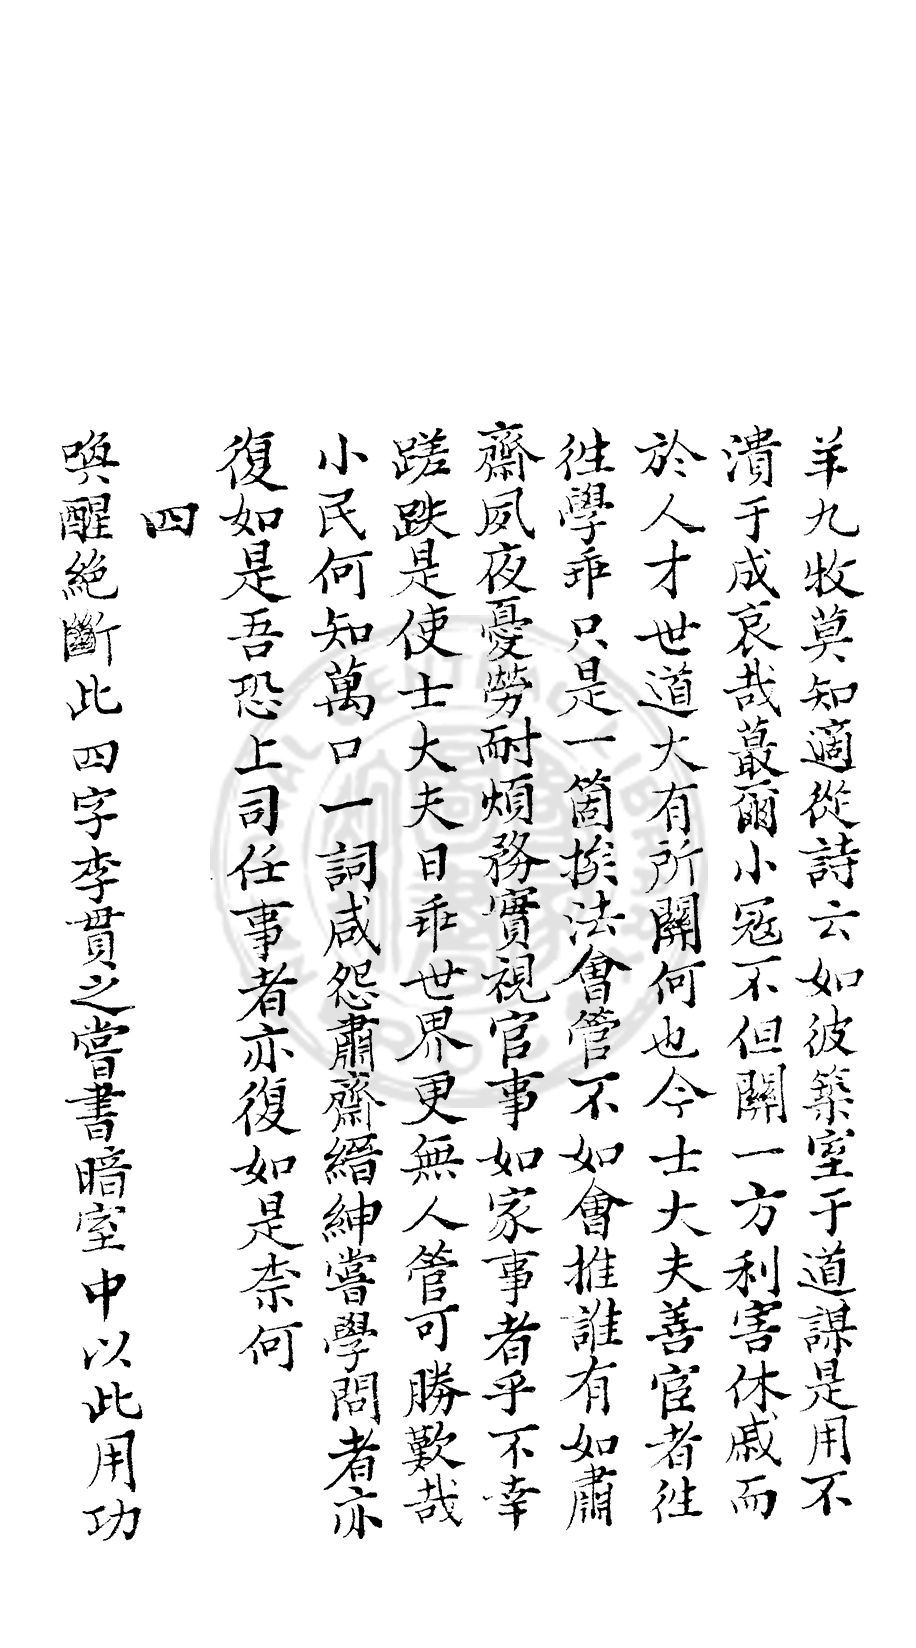 羊九牧莫知適從詩云如彼築室于道謀是用不
潰于成哀哉蕞爾小冦不但關一方利害休戚而
於人才世道大有所關何也今士大夫善宦者徃
徃學乖只是一箇挨法會管不如會推誰有如肅
齋夙夜憂勞耐煩務實視官事如家事者乎不幸
蹉跌是使士大夫日乖世界更無人管可勝歎哉
小民何知萬口一詞咸怨肅齋縉紳嘗學問者亦
復如是吾恐上司任事者亦復如是柰何
四
喚醒絶斷此四字李貫之嘗書暗室中以此用功